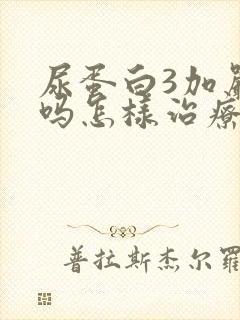 尿蛋白3加
吗怎样治疗
普拉斯杰尔罗